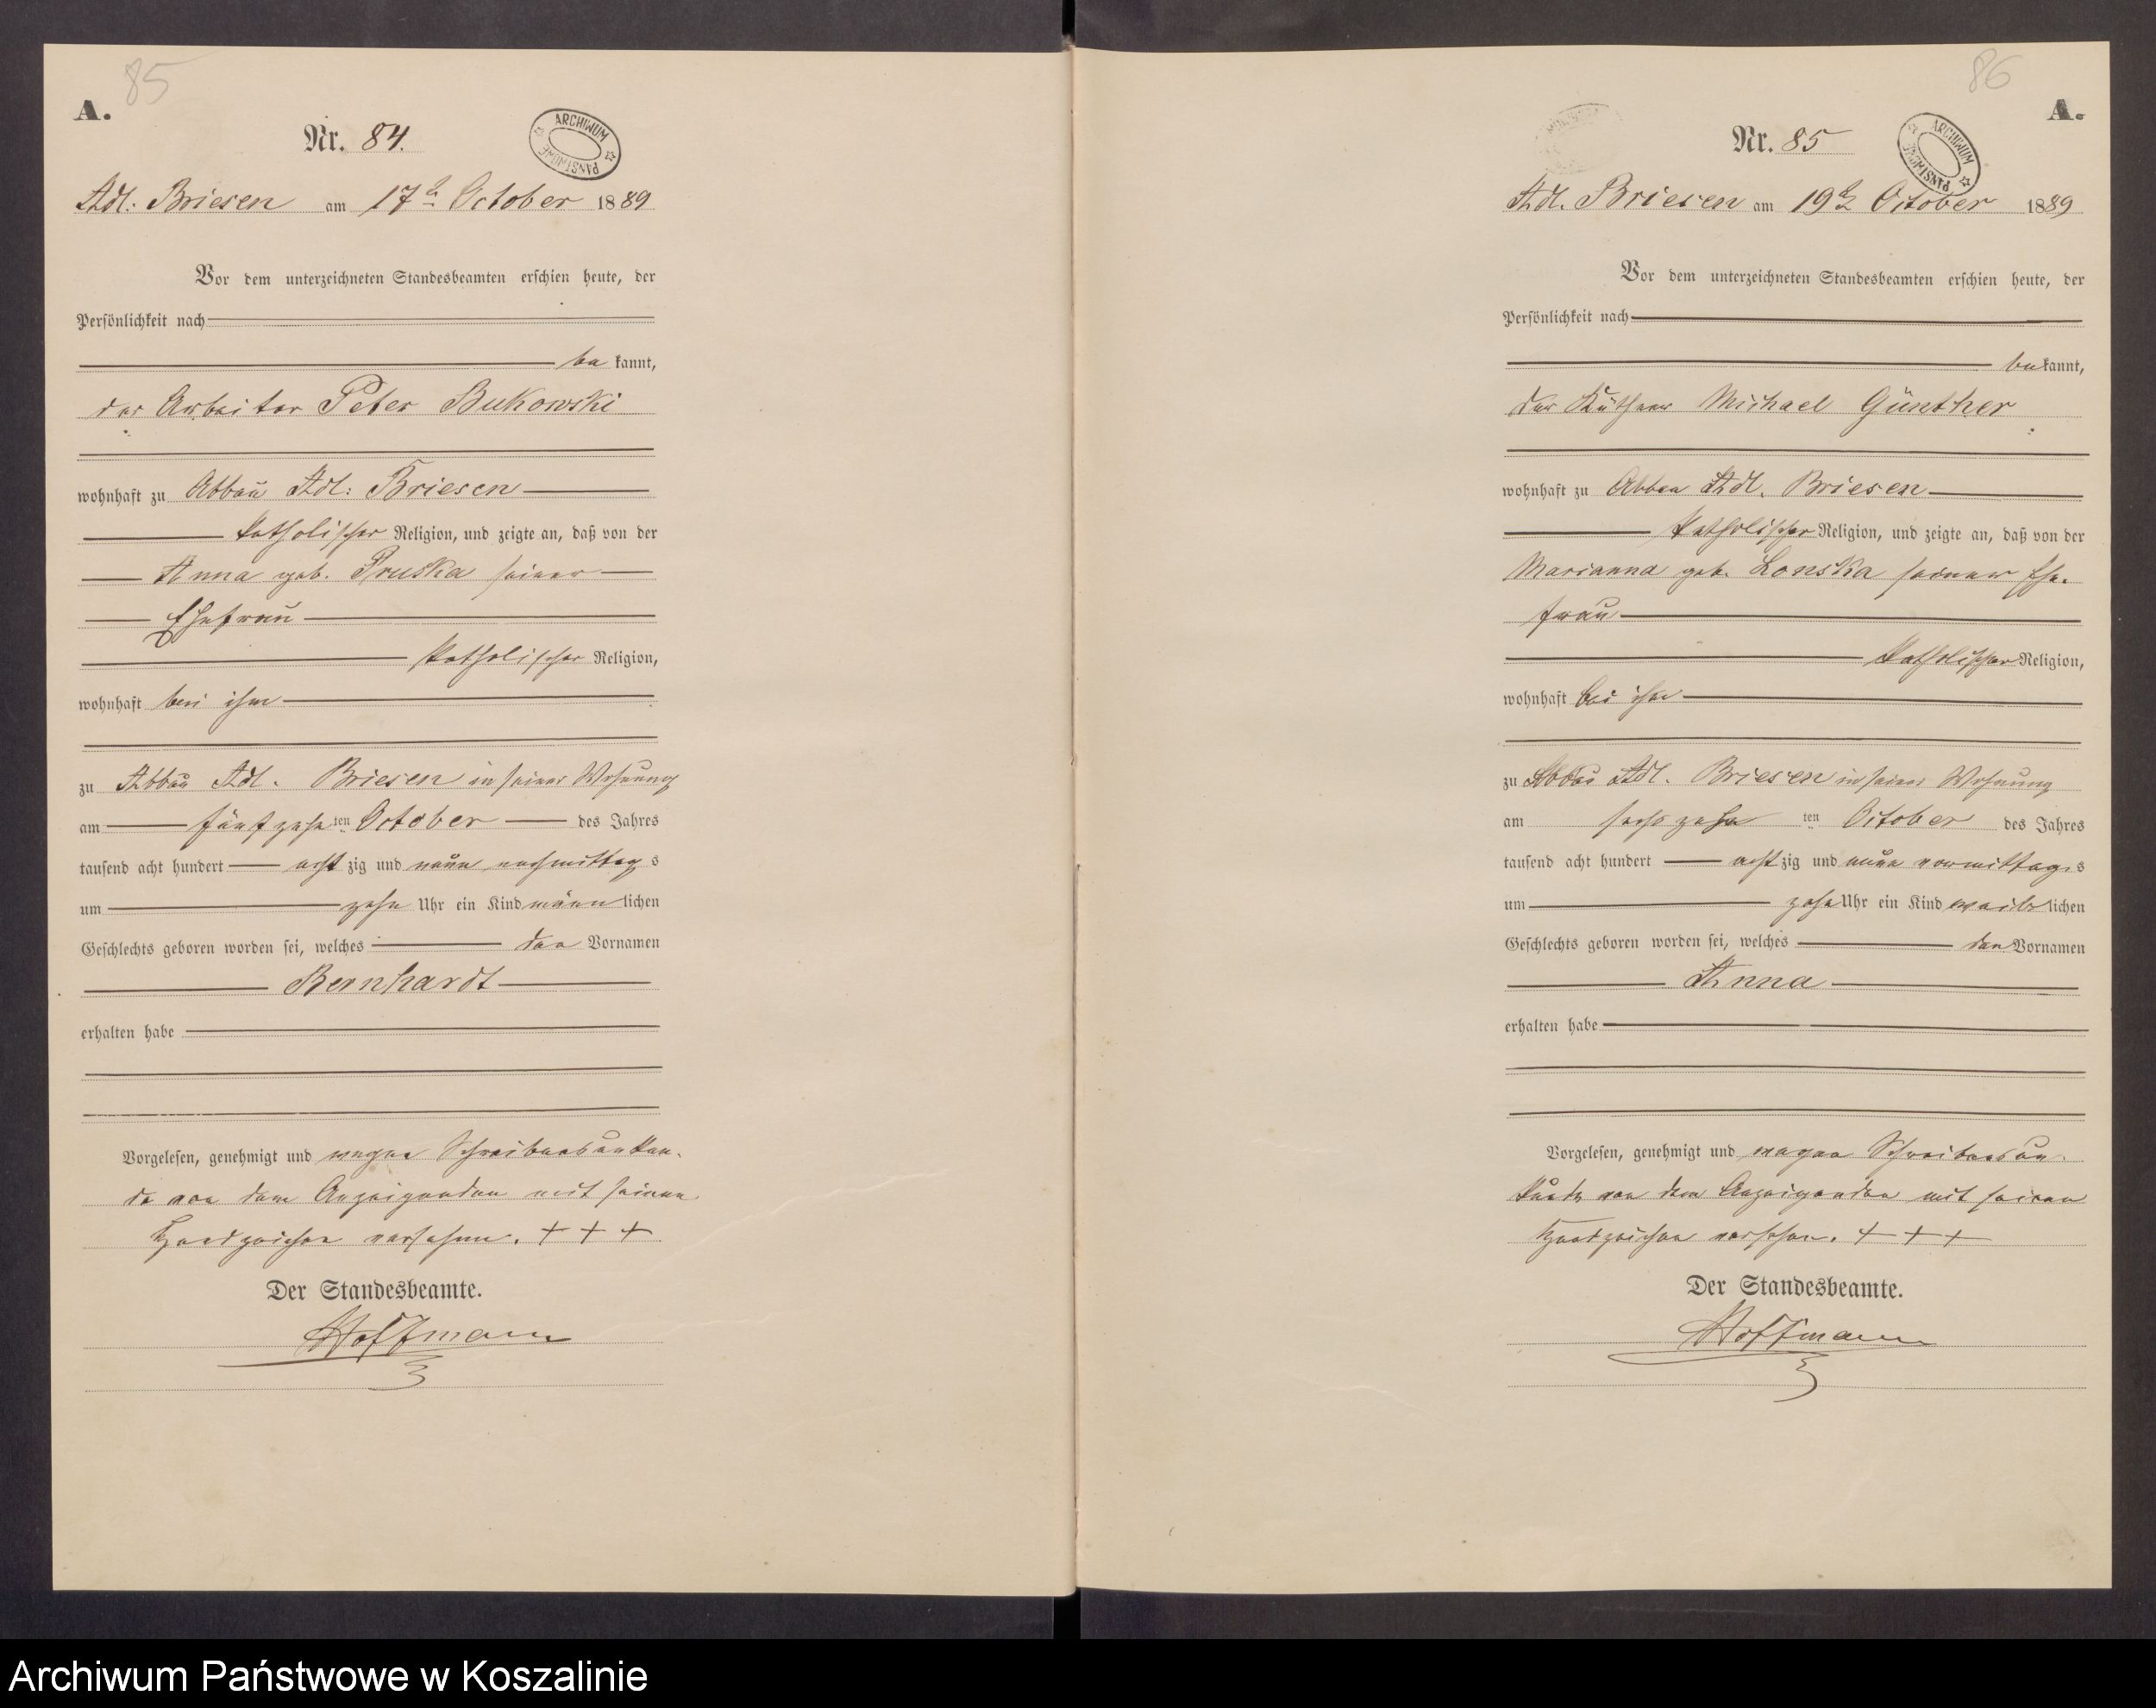 85
A.
Nr. 84.
ARCHIWUM PAŃSTWOWE
Adl: Briesen am 17t October 1889
Vor dem unterzeichneten Standesbeamten erschien heute, der
Persönlichkeit nach
be kannt,
der Arbeiter Peter Bukowski
wohnhaft zu Abbau Adl: Briesen
katholischer Religion, und zeigte an, daß von der
Anna geb. Pruska seiner
Ehefrau
katholischer Religion,
wohnhaft bei ihm
zu Abbau Adl. Briesen in seiner Wohnung
am fünfzehn ten October des Jahres
tausend acht hundert acht zig und neun nachmittag s
um zehn Uhr ein Kind männ lichen
Geschlechts geboren worden sei, welches den Vornamen
Bernhardt
erhalten habe
Vorgelesen, genehmigt und wegen Schreibensunkun-
de von dem Anzeigenden mit seinem
Handzeichen versehen. + + +
Der Standesbeamte.
Hoffmann
86
A.
Nr. 85
ARCHIWUM PAŃSTWOWE
Adl. Briesen am 19t October 1889
Vor dem unterzeichneten Standesbeamten erschien heute, der
Persönlichkeit nach
be kannt,
der Käthner Michael Günther
wohnhaft zu Abbau Adl. Briesen
katholischer Religion, und zeigte an, daß von der
Marianna geb. Lonska seiner Ehe-
frau
katholischer Religion,
wohnhaft bei ihm
zu Abbau Adl. Briesen in seiner Wohnung
am sechszehn ten October des Jahres
tausend acht hundert acht zig und neun vormittag s
um zehn Uhr ein Kind weib lichen
Geschlechts geboren worden sei, welches den Vornamen
Anna
erhalten habe
Vorgelesen, genehmigt und wegen Schreibensun-
kunde von dem Anzeigenden mit seinem
Handzeichen versehen. + + +
Der Standesbeamte.
Hoffmann
Archiwum Państwowe w Koszalinie